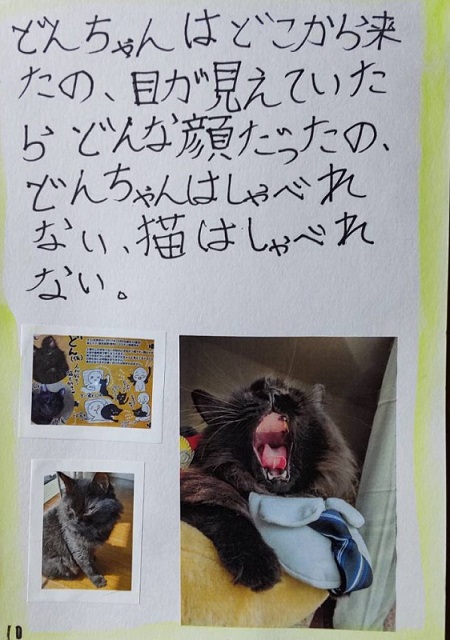 どんちゃんはどこから来
たの、目が見えていた
らどんな顔だったの、
どんちゃんはしゃべれ
ない、猫はしゃべれ
ない。
どん
10